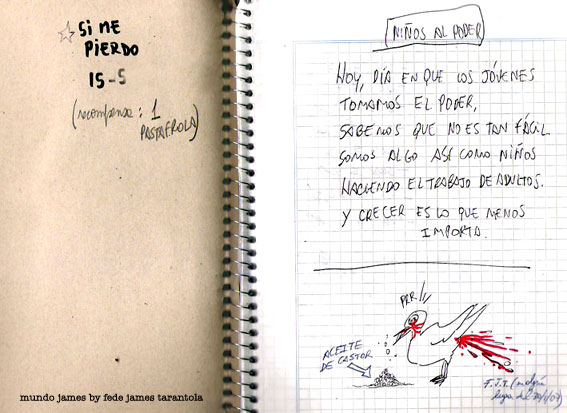 SI ME
PIERDO
15-5
(recompensa: 1
PASTAFROLA)
mundo james by fede james tarantola
NIÑOS AL PODER
HOY, DÍA EN QUE LOS JÓVENES
TOMAMOS EL PODER,
SABEMOS QUE NO ES TAN FÁCIL
SOMOS ALGO ASÍ COMO NIÑOS
HACIENDO EL TRABAJO DE ADULTOS.
Y CRECER ES LO QUE MENOS
IMPORTA.
PRR!!
ACEITE
DE CASTOR
F.J.T.